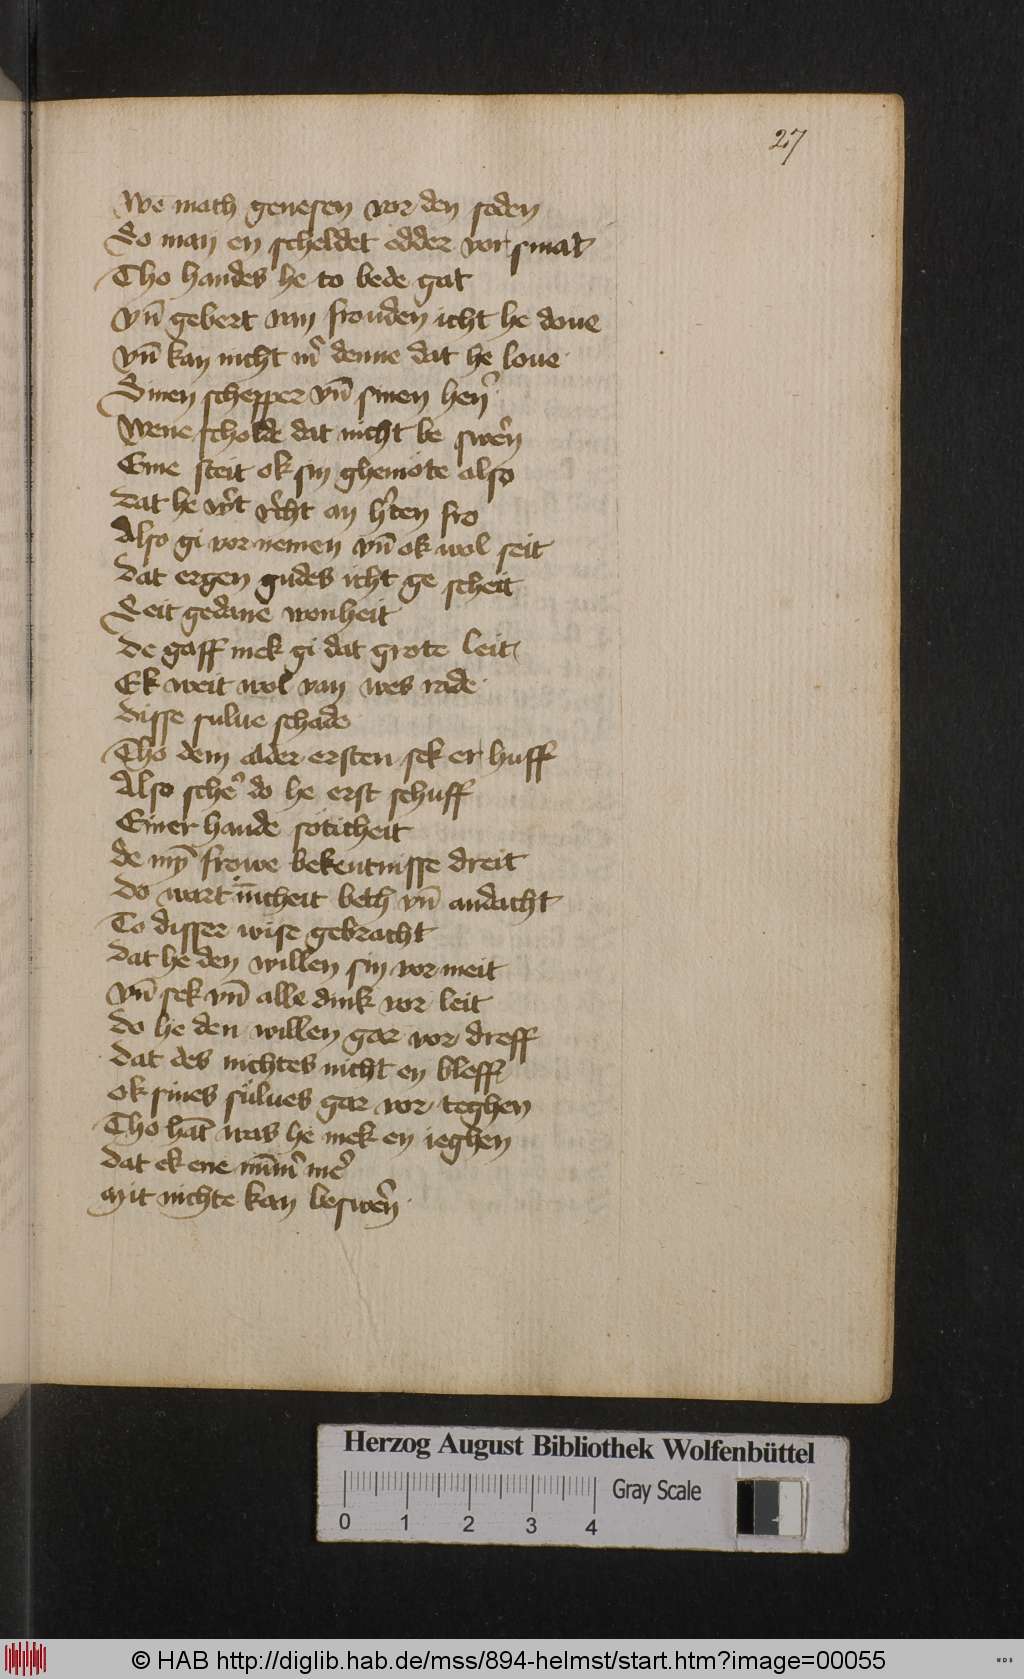 27
we mach genesen vor den soden
So man en scheldet edder vor smat
Tho handes he to bede gat
vn̄ gebert van frouden icht he doue
vn̄ kan nicht mͬ denne dat he loue
Sinen schepper vn̄ sinen herͬ
wene scholde dat nicht be swerͬn
Eme steit ok sin ghemote also
dat he wͬt rͬcht an hͬten fro
Also gi vornemen vn̄ ok wol seit
dat ergen gudes icht ge scheit
Seit gedane wonheit
de gaff mek gi dat grote leit
Ek weit wol van wes rade
disse sulue schade
Tho dem alder ersten sek er huff
Also scheͬ do he erst schuff
Einer hande soticheit
de myͬ frowe bekentnisse dreit
do wart īnicheit beth vn̄ andacht
To disser wise gebracht
dat he den willen sin vor meit
vn̄ sek vn̄ alle dink vor leit
do he den willen gar vor dreff
dat des nichtes nicht en bleff
ok sines sülues gar vor teghen
Tho hāt was he mek en ieghen
dat ek ene nūmͬ meͬ
Mit nichte kan besweͬn
Herzog August Bibliothek Wolfenbüttel
0 1 2 3 4 Gray Scale
© HAB http://diglib.hab.de/mss/894-helmst/start.htm?image=00055